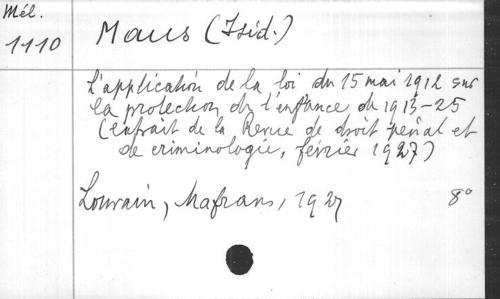 Mél.
1110
Maus (Isid.)
L'application de la loi du 15 mai 1912 sur
la protection de l'enfance de 1913-25
(extrait de la Revue de droit pénal et
de criminologie, février 1927)
Louvain, Mafrans, 1927 8°